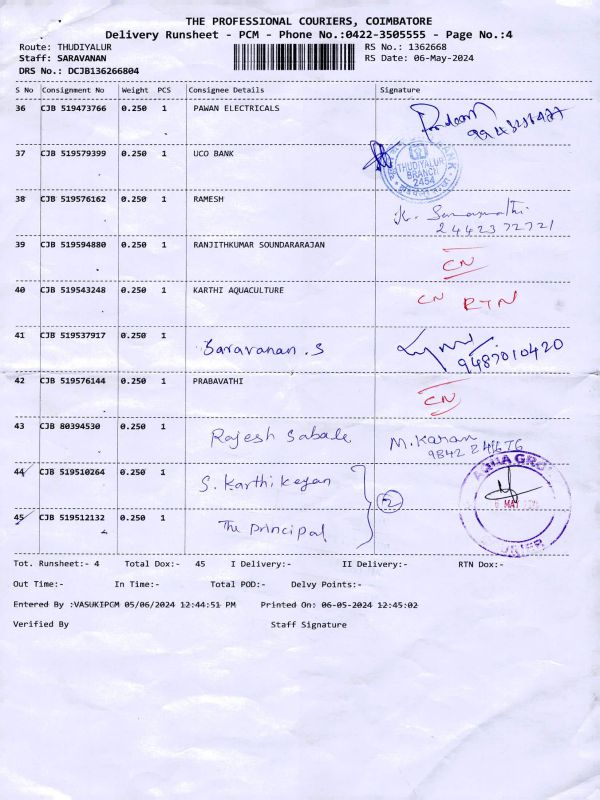 THE PROFESSIONAL COURIERS, COIMBATORE
Delivery Runsheet - PCM - Phone No.:0422-3505555 - Page No.:4
Route: THUDIYALUR
RS No.: 1362668
Staff: SARAVANAN
RS Date: 06-May-2024
DRS No.: DCJB136266804
S No Consignment No Weight PCS Consignee Details Signature
36 CJB 519473766 0.250 1 PAWAN ELECTRICALS
37 CJB 519579399 0.250 1 UCO BANK
THUDIYALUR
BRANCH
2454
38 CJB 519576162 0.250 1 RAMESH
2442372721
39 CJB 519594880 0.250 1 RANJITHKUMAR SOUNDARARAJAN
CN
40 CJB 519543248 0.250 1 KARTHI AQUACULTURE CN RTN
41 CJB 519537917 0.250 1 Saravanan.S
9487010420
42 CJB 519576144 0.250 1 PRABAVATHI
CN
43 CJB 80394530 0.250 1 Rajesh Sabale M.Karan
44 CJB 519510264 0.250 1 S. Karthikeyan
2
45 CJB 519512132 0.250 1 The principal
Tot. Runsheet:- 4 Total Dox:- 45 I Delivery:- II Delivery:- RTN Dox:-
Out Time:- In Time:- Total POD:- Delvy Points:-
Entered By :VASUKIPCM 05/06/2024 12:44:51 PM Printed On: 06-05-2024 12:45:02
Verified By Staff Signature